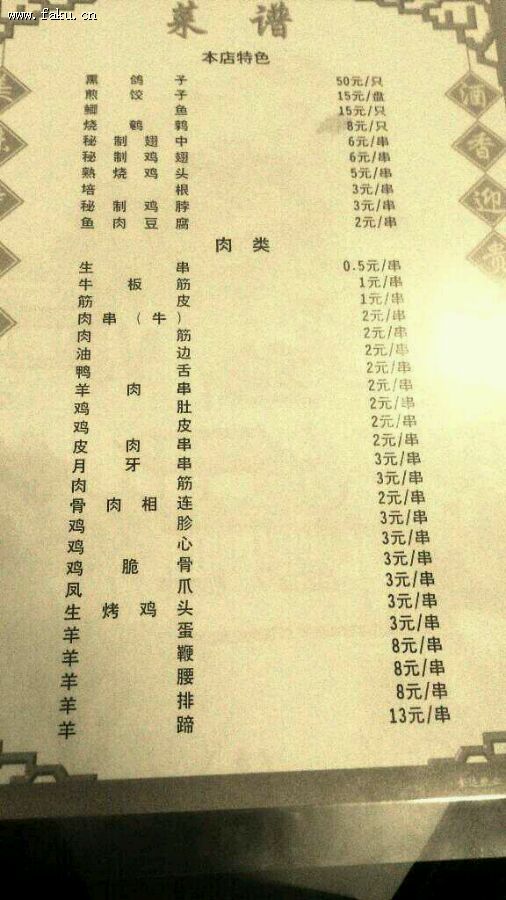 www.faku.cn
菜谱
本店特色
熏鸽子 50元/只
煎饺子 15元/盘
鲫鱼 15元/只
烧鹌鹑 8元/只
秘制翅中 6元/串
秘制鸡翅 6元/串
熟烧鸡头 5元/串
培根 3元/串
秘制鸡脖 3元/串
鱼肉豆腐 2元/串
肉类
生串 0.5元/串
牛板筋 1元/串
筋皮 1元/串
肉串（牛） 2元/串
肉筋 2元/串
油边 2元/串
鸭舌 2元/串
羊肉串 2元/串
鸡肚 2元/串
鸡皮 2元/串
皮肉串 2元/串
月牙串 3元/串
肉筋 3元/串
骨肉相连 2元/串
鸡胗 3元/串
鸡心 3元/串
鸡脆骨 3元/串
凤爪 3元/串
生烤鸡头 3元/串
羊蛋 3元/串
羊鞭 8元/串
羊腰 8元/串
羊排 8元/串
羊蹄 13元/串
酒香迎贵